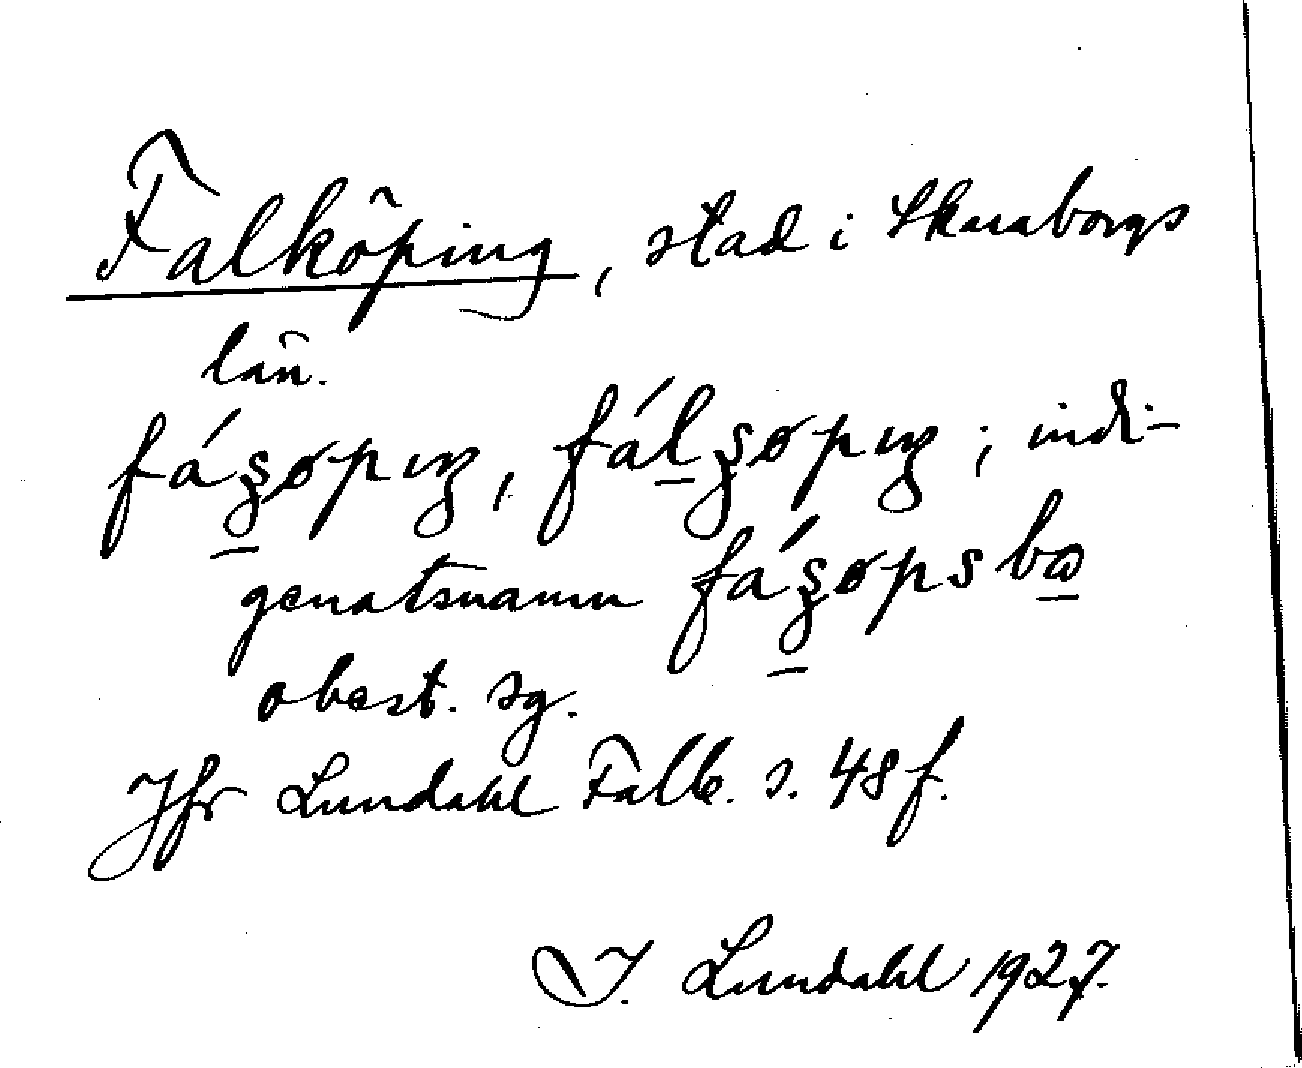 Falköping, stad i Skaraborgs
län.
fáʂøpıŋ, fálʂøpıŋ; indi-
genatsnamn fáʂøpsbω
obest. sg.
Jfr Lundahl Falb. s. 48 f.
I. Lundahl 1927.